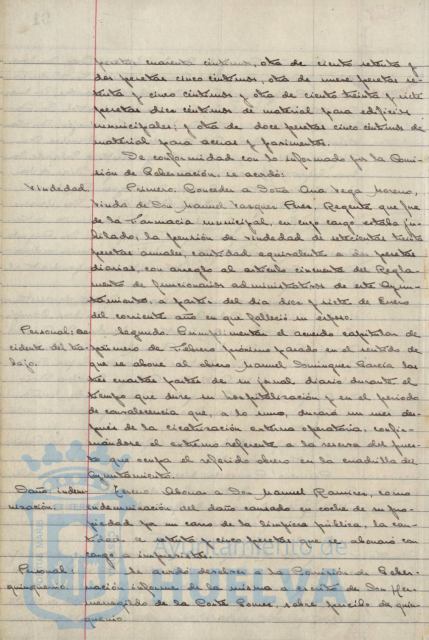 pesetas cuarenta céntimos, otra de ciento setenta y
dos pesetas cinco céntimos, otra de nueve pesetas se-
tenta y cinco céntimos y otra de ciento treinta y siete
pesetas diez céntimos de material para edificios
municipales; y otra de doce pesetas cinco céntimos de
material para aceras y pavimentos.
De conformidad con lo informado por la Comi-
sión de Gobernación, se acordó:
Viudedad. Primero: Conceder a Doña Ana Vega Moreno,
viuda de Don Manuel Vazquez Pérez, Regente que fue
de la Farmacia municipal, en cuyo cargo estaba ju-
bilado, la pensión de viudedad de setecientas treinta
pesetas anuales, cantidad equivalente a dos pesetas
diarias, con arreglo al artículo cincuenta del Regla-
mento de funcionarios administrativos de este Ayun-
tamiento, a partir del día diez y siete de Enero
del corriente año en que falleció su esposo.
Personal: ac- Segundo: Cumplimentar el acuerdo capitular de
cidente del tra- primero de Febrero próximo pasado en el sentido de
bajo. que se abone al obrero Manuel Dominguez García las
tres cuartas partes de su jornal diario durante el
tiempo que dure su hospitalización y en el periodo
de convalecencia que, a lo sumo, durará un mes des-
pués de la cicatrización externa operatoria, confir-
mándose el extremo referente a la reserva del pues-
to que ocupa el referido obrero en la cuadrilla del
Ayuntamiento.
Daño: indem- Tercero: Abonar a Don Manuel Ramirez, como
nización. indemnización del daño causado en coche de su pro-
piedad por un carro de la limpieza pública, la can-
tidad de setenta y cinco pesetas que se abonará con
cargo a imprevistos.
Personal: Se acordó devolver a la Comisión de Gober-
quinquenio. nación informe de la misma a escrito de Don Her-
menegildo de la Corte Gomez, sobre percibo de quin-
quenio.
Ayuntamiento de
HUELVA